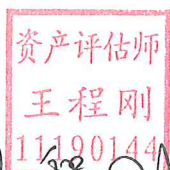 资产评估师
王程刚
11190144